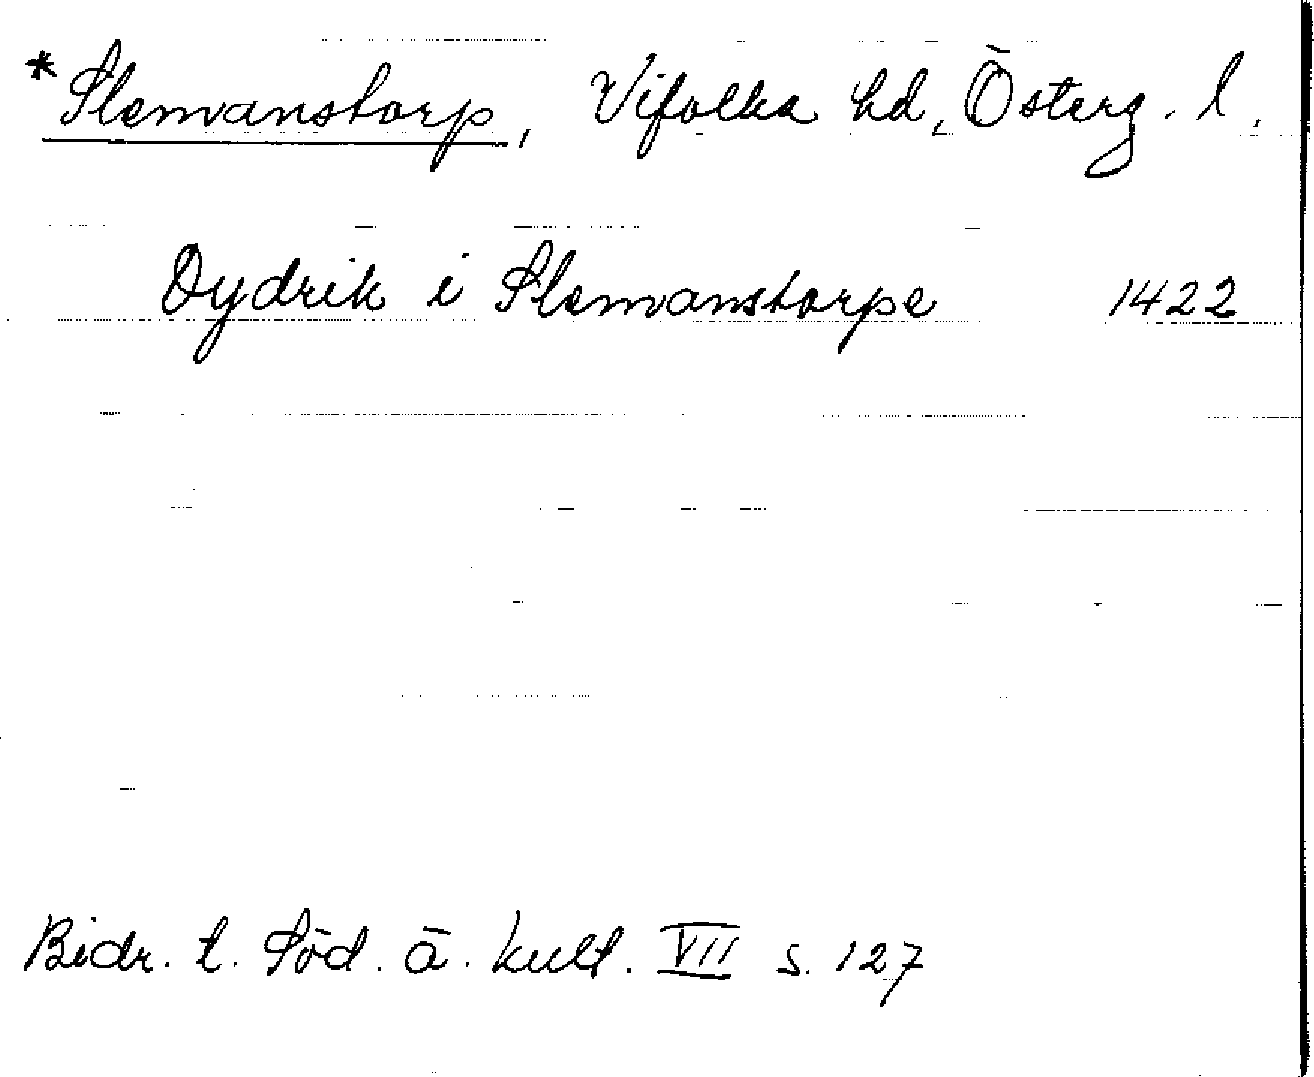 *Slemvanstorp, Vifolka hd, Österg. l.
Dydrik i Slemvanstorpe 1422
Bidr. t. Söd. ä. kult. VII s. 127